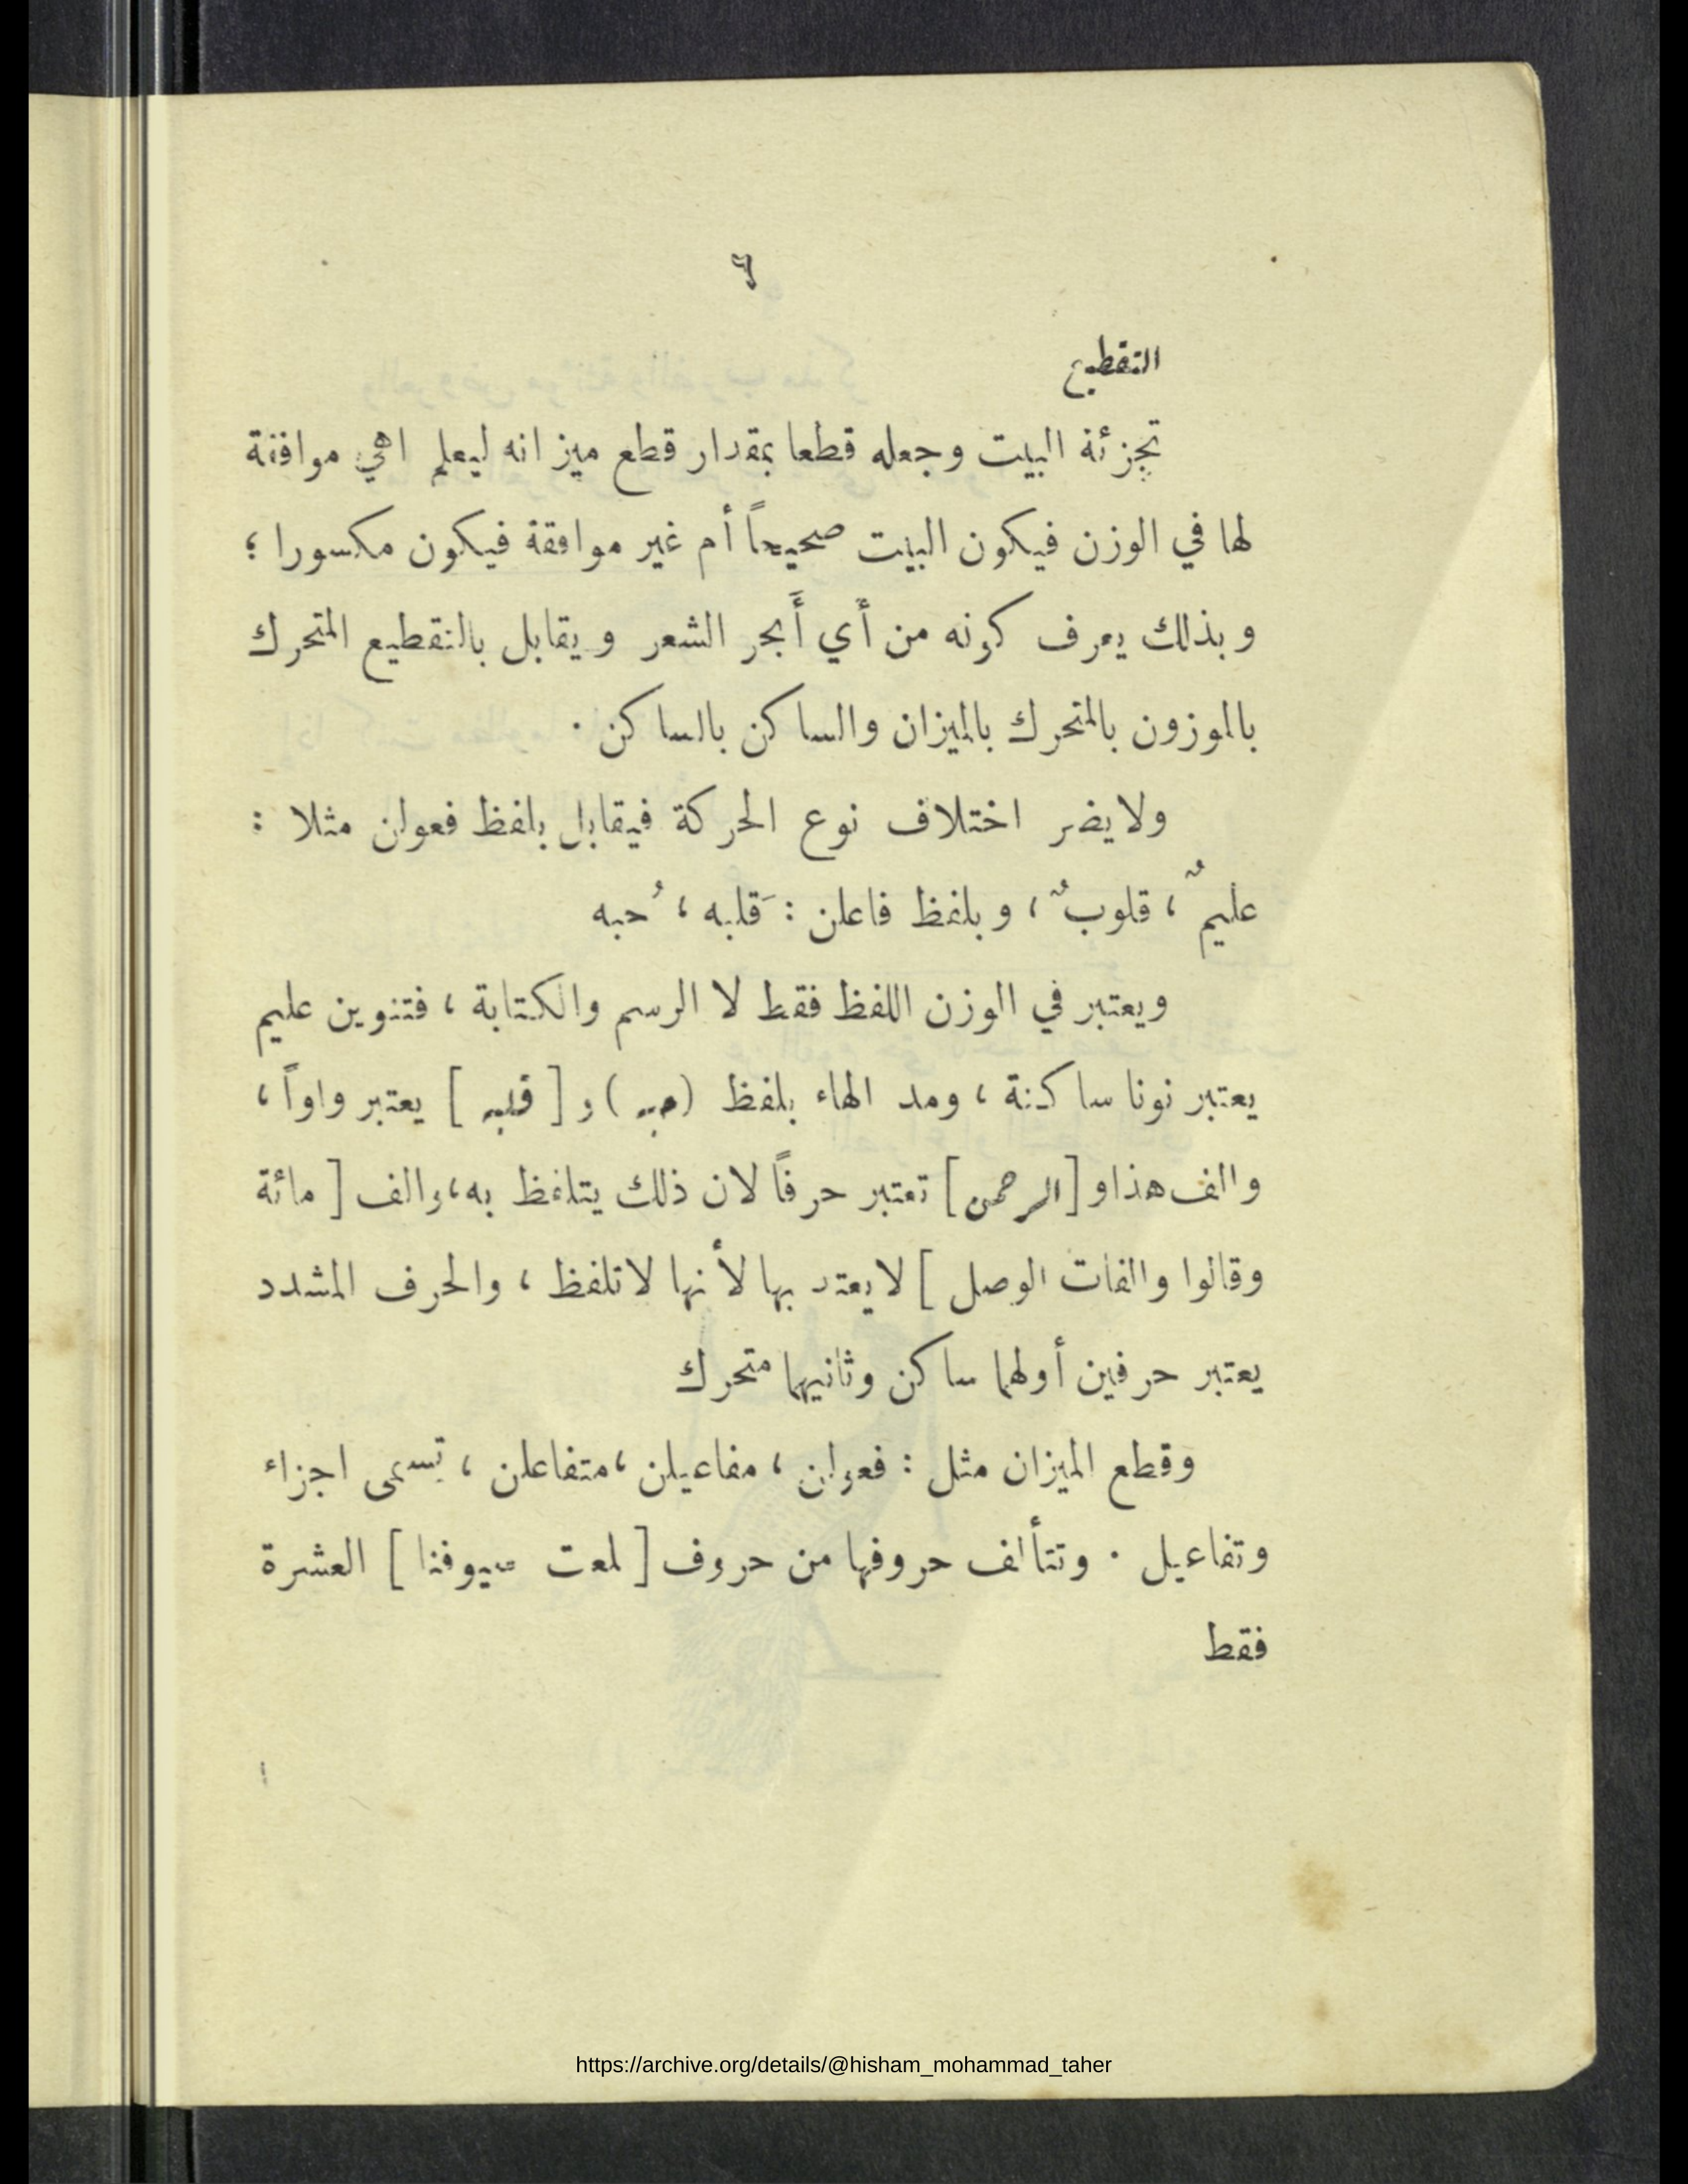 ٦
التقطيع
تجزئة البيت وجعله قطعا بمقدار قطع ميزانه ليعلم اهي موافقة
لها في الوزن فيكون البيت صحيحاً أم غير موافقة فيكون مكسورا ؛
وبذلك يعرف كونه من أي أَبحر الشعر ويقابل بالتقطيع المتحرك
بالموزون بالمتحرك بالميزان والساكن بالساكن .
ولا يضر اختلاف نوع الحركة فيقابل بلفظ فعولن مثلا :
عليمٌ ، قلوبٌ ، وبلفظ فاعلن : قَلبه ، حُبه
ويعتبر في الوزن اللفظ فقط لا الرسم والكتابة ، فتنوين عليم
يعتبر نونا ساكنة ، ومد الهاء بلفظ (حبه) و [ قلبه ] يعتبر واواً ،
والف هذا و [الرحمن] تعتبر حرفاً لان ذلك يتلفظ به ، والف [ مائة
وقالوا والفات الوصل ] لا يعتد بها لأنها لا تلفظ ، والحرف المشدد
يعتبر حرفين أولهما ساكن وثانيهما متحرك
وقطع الميزان مثل : فعولن ، مفاعيلن ، متفاعلن ، تسمى اجزاء
وتفاعيل . وتتألف حروفها من حروف [ لمعت سيوفنا ] العشرة
فقط
https://archive.org/details/@hisham_mohammad_taher